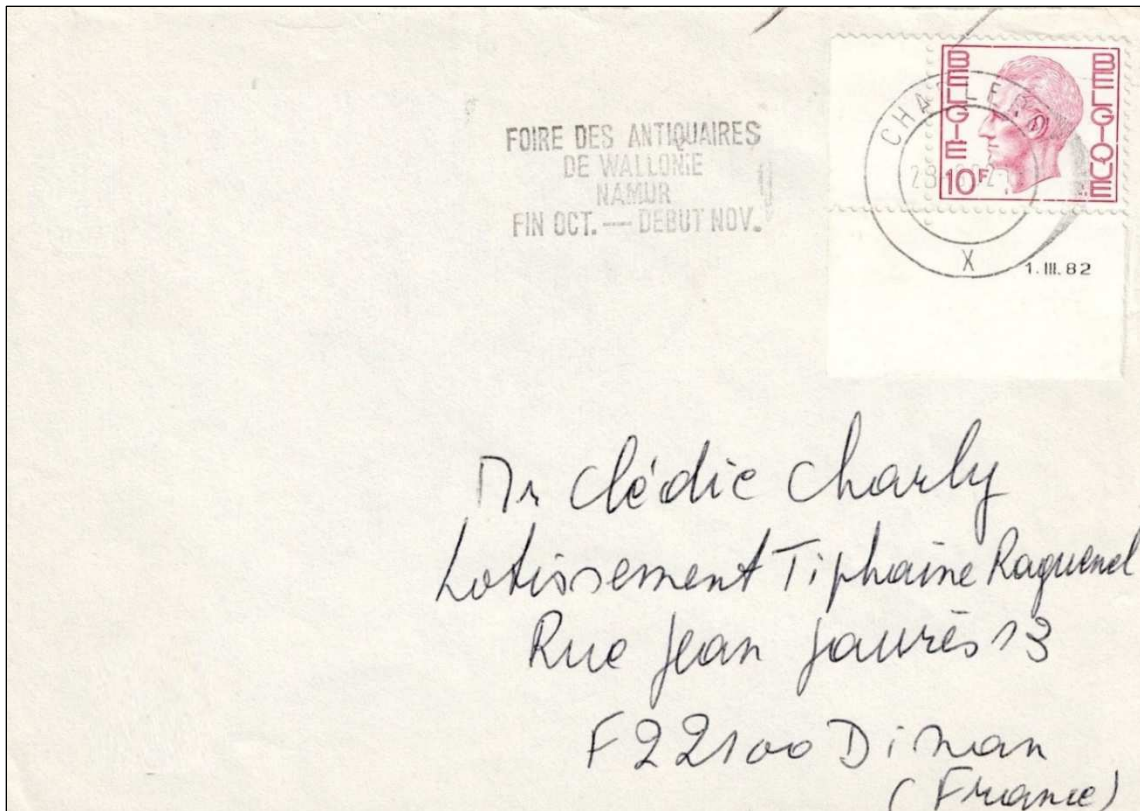 FOIRE DES ANTIQUAIRES
DE WALLONIE
NAMUR
FIN OCT. — DEBUT NOV.
BELGIE
BELGIQUE
10F
X
1. III. 82
Mr Clédic Charly
Lotissement Tiphaine Raguenel
Rue Jean Jaurès 13
F22100 Dinan
(France)